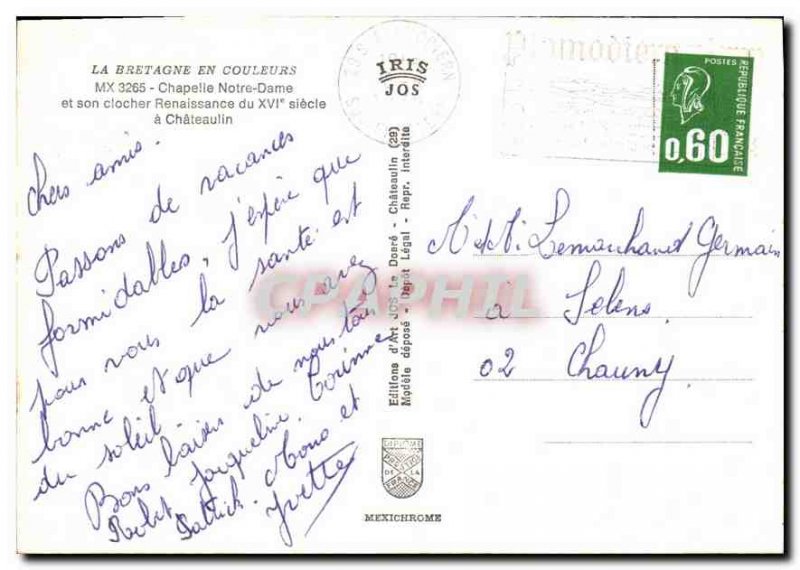 LA BRETAGNE EN COULEURS
MX 3265 - Chapelle Notre-Dame
et son clocher Renaissance du XVIe siècle
à Châteaulin
IRIS
JOS
POSTES
REPUBLIQUE FRANÇAISE
0,60
chers amis.
Passons de vacances
formidables, j'espère que
pour vous la santé est
bonne et que vous avez
du soleil
Bons baisers de nous tous
Jacqueline Corinne
Robert Patrick. Mono et
Yvette
Editions d'Art JOS Le Doaré - Châteaulin (29)
Modèle déposé - Dépôt Légal - Repr. interdite
M. et Me Lemarchand Germain
à Selens
02 Chauny
CPAPHIL
DIPLOME
DE LA
MEXICHROME